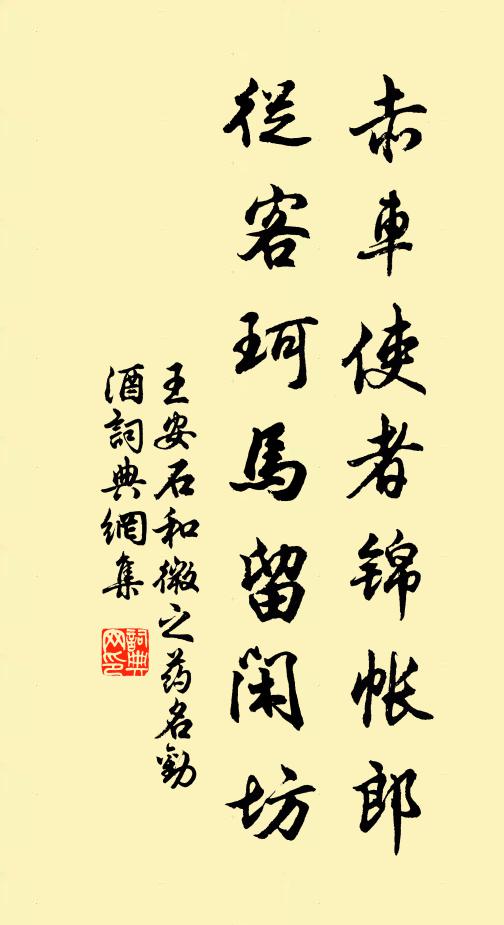 赤車使者錦帳郎
從客珂馬留閑坊
王安石和微之药名勸
酒詞典網集
詞典
网印